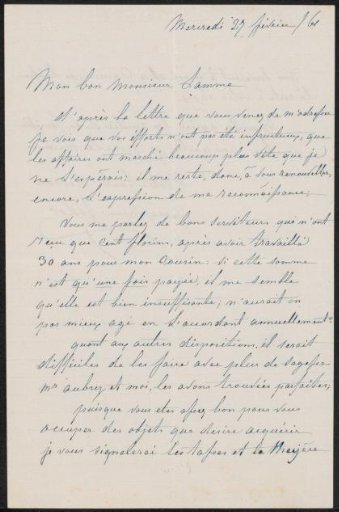 Mercredi 27 février / 61
Mon bon Monsieur Lamme
d'après la lettre que vous venez de m'adresser
je vois que vos efforts n'ont pas été infructueux, que
les affaires ont marché beaucoup plus vite que je
ne l'espérais; il me reste, donc, a vous renouveller,
encore, l'expression de ma reconnoissance,
Vous me parlez de bons serviteurs qui n'ont
reçu que cent florins, après avoir travaillé
30 ans pour mon Cousin: si cette somme
n'est qu'une fois payée, il me semble
qu'elle est bien insuffisante; n'aurait on
pas mieux agi en l'accordant annuellement
quant aux autres dispositions, il serait
difficiles de les faire avec plus de sagesse
Mr aubry et moi, les avons trouvées parfaites,
puisque vous etes assez bon pour vous
occuper des objets que désire acquérir
je vous signalerai les tasses et la